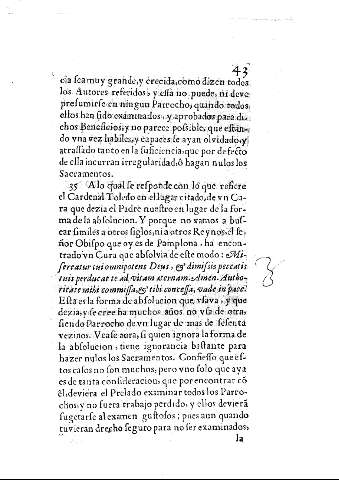 43
cia sea muy grande, y crecida, como dizen todos
los Autores referidos, y essa no puede, ni deve
presumirse en ningun Parrocho, quando todos
ellos han sido examinados, y aprobados para di-
chos Beneficios, y no parece possible, que estan-
do vna vez habiles, y capaces se ayan olvidado, y
atrassado tanto en la suficiencia, que por defecto
de ella incurran irregularidad, ò hagan nulos los
Sacramentos.
35 A lo qual se responde con lo que refiere
el Cardenal Toledo en el lugar citado, de vn Cu-
ra que dezia el Padre nuestro en lugar de la for-
ma de la absolucion. Y porque no vamos a bus-
car similes a otros siglos, ni a otros Reynos, el se-
ñor Obispo que oy es de Pamplona, ha encon-
trado vn Cura que absolvia de este modo: Mi-
sereatur tui omnipotens Deus, & dimissis peccatis
tuis perducat te ad vitam æternam. Amen. Autho-
ritate mihi commissa, & tibi concessa, vade in pace.
Esta es la forma de absolucion que vsava, y que
dezia, y se cree ha muchos años no vsa de otra,
siendo Parrocho de vn lugar de mas de sesenta
vezinos. Vease aora, si quien ignora la forma de
la absolucion, tiene ignorancia bastante para
hazer nulos los Sacramentos. Confiesso que es-
tos casos no son muchos, pero vno solo que aya
es de tanta consideracion, que por encontrar cõ
èl, deviera el Prelado examinar todos los Parro-
chos, y no fuera trabajo perdido, y ellos devierã
sugetarse al examen gustosos; pues aun quando
tuvieran drecho seguro para no ser examinados,
la